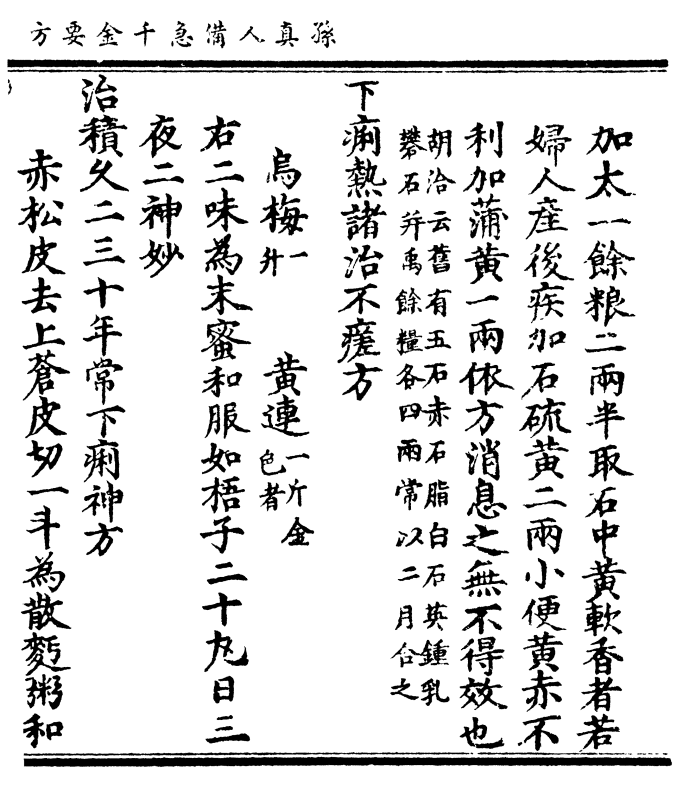 孫真人備急千金要方
加太一餘粮二兩半取石中黃軟香者若
婦人産後疾加石硫黃二兩小便黃赤不
利加蒲黃一兩依方消息之無不得效也
胡洽云舊有五石赤石脂白石英鍾乳
礬石并禹餘糧各四兩常以二月合之
下痢熱諸治不瘥方
烏梅一升 黃連一斤金色者
右二味為末蜜和服如梧子二十丸日三
夜二神妙
治積久二三十年常下痢神方
赤松皮去上蒼皮切一斗為散麪粥和